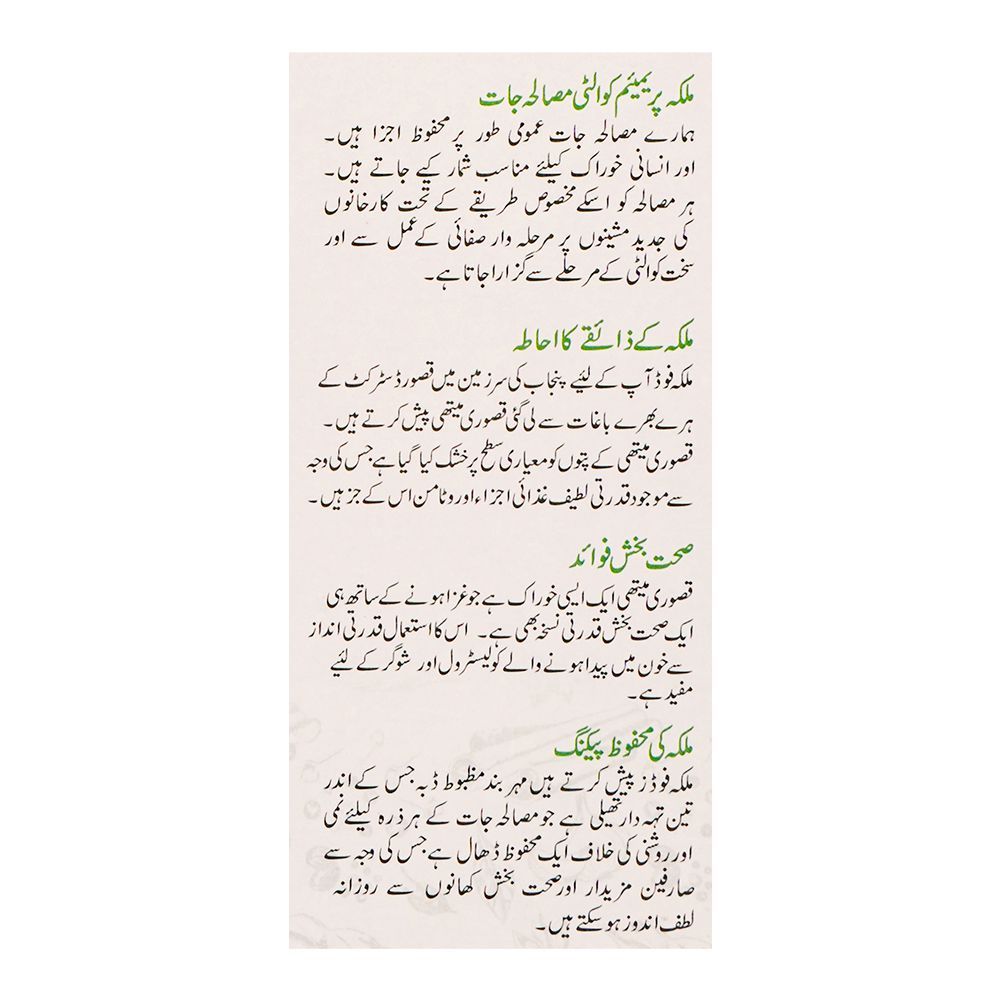 ملکہ پریمیئم کوالٹی مصالحہ جات
ہمارے مصالحہ جات عمومی طور پر محفوظ اجزا ہیں۔
اور انسانی خوراک کیلئے مناسب شمار کیے جاتے ہیں۔
ہر مصالحہ کو اسکے مخصوص طریقے کے تحت کارخانوں
کی جدید مشینوں پر مرحلہ وار صفائی کے عمل سے اور
سخت کوالٹی کے مرحلے سے گزارا جاتا ہے۔
ملکہ کے ذائقے کا احاطہ
ملکہ فوڈ آپ کے لئیے پنجاب کی سرزمین میں قصور ڈسٹرکٹ کے
ہرے بھرے باغات سے لی گئی قصوری میتھی پیش کرتے ہیں۔
قصوری میتھی کے پتوں کو معیاری سطح پر خشک کیا گیا ہے جس کی وجہ
سے موجود قدرتی لطیف غذائی اجزاء اور وٹامن اس کے جز ہیں۔
صحت بخش فوائد
قصوری میتھی ایک ایسی خوراک ہے جو غزا ہونے کے ساتھ ہی
ایک صحت بخش قدرتی نسخہ بھی ہے۔ اس کا استعمال قدرتی انداز
سے خون میں پیدا ہونے والے کولیسٹرول اور شوگر کے لئیے
مفید ہے۔
ملکہ کی محفوظ پیکنگ
ملکہ فوڈز پیش کرتے ہیں مہر بند مظبوط ڈبہ جس کے اندر
تین تہہ دار تھیلی ہے جو مصالحہ جات کے ہر ذرہ کیلئے نمی
اور روشنی کی خلاف ایک محفوظ ڈھال ہے جس کی وجہ سے
صارفین مزیدار اور صحت بخش کھانوں سے روزانہ
لطف اندوز ہو سکتے ہیں۔